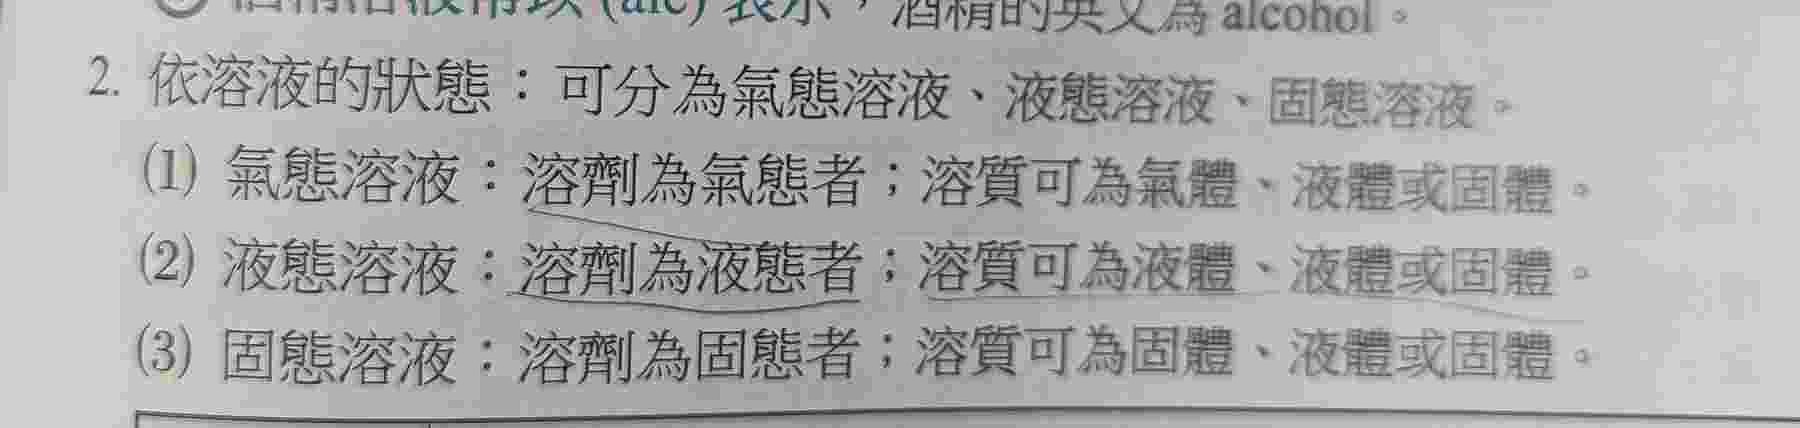 酒精溶液常以 (alc) 表示，酒精的英文為 alcohol。
2. 依溶液的狀態：可分為氣態溶液、液態溶液、固態溶液。
(1) 氣態溶液：溶劑為氣態者；溶質可為氣體、液體或固體。
(2) 液態溶液：溶劑為液態者；溶質可為液體、液體或固體。
(3) 固態溶液：溶劑為固態者；溶質可為固體、液體或固體。